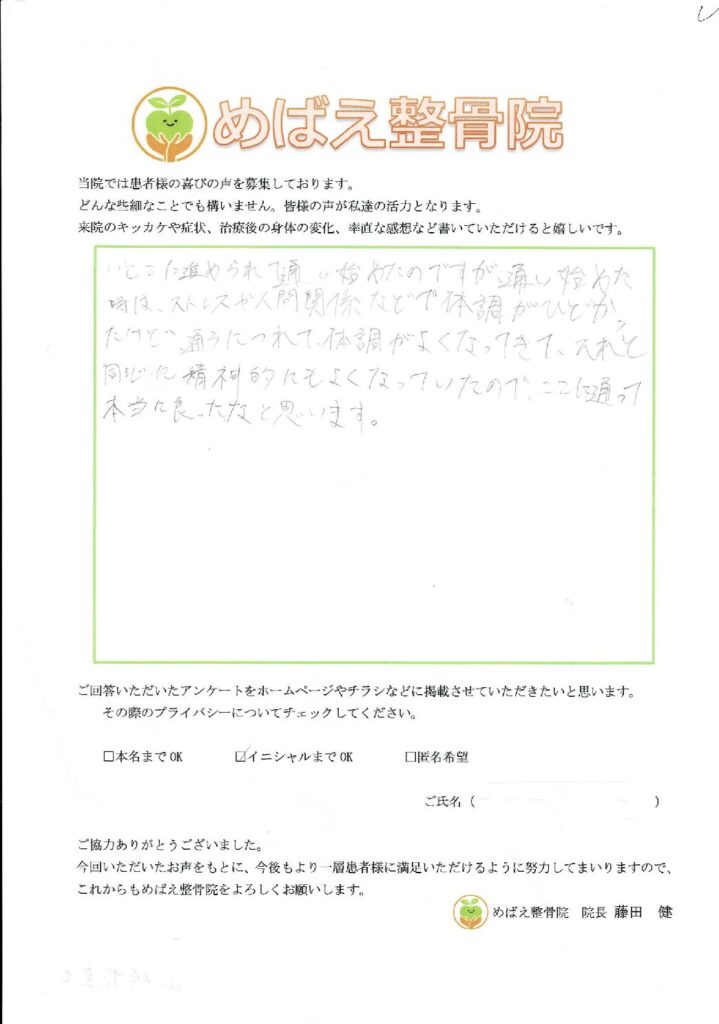 めばえ整骨院
当院では患者様の喜びの声を募集しております。
どんな些細なことでも構いません。皆様の声が私達の活力となります。
来院のキッカケや症状、治療後の身体の変化、率直な感想など書いていただけると嬉しいです。
いとこに進められて通い始めたのですが、通い始めた
時は、ストレスや人間関係などで体調がひどかっ
たけど、通うにつれて、体調がよくなってきて、それと
同じに精神的にもよくなっていたので、ここに通って
本当に良ったなと思います。
ご回答いただいたアンケートをホームページやチラシなどに掲載させていただきたいと思います。
その際のプライバシーについてチェックしてください。
□本名までOK ☑イニシャルまでOK □匿名希望
ご氏名（ ）
ご協力ありがとうございました。
今回いただいたお声をもとに、今後もより一層患者様に満足いただけるように努力してまいりますので、
これからもめばえ整骨院をよろしくお願いします。
めばえ整骨院 院長 藤田 健